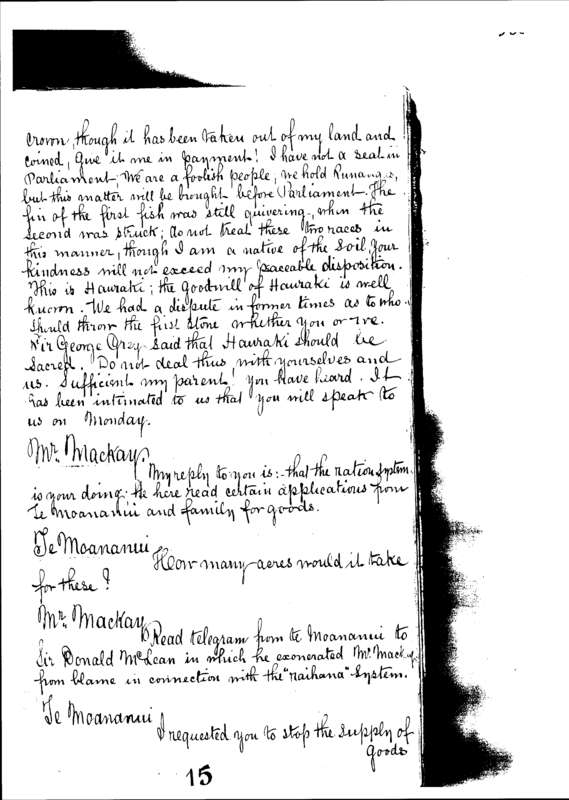 Crown, though it has been taken out of my land and
coined, Give it me in payment! I have not a seat in
Parliament, We are a foolish people, we hold Runangas,
but this matter will be brought before Parliament. The
fin of the first fish was still quivering, when the
second was struck; do not treat these two races in
this manner, though I am a native of the soil, Your
kindness will not exceed my peaceable disposition.
This is Hauraki; the goodwill of Hauraki is well
known. We had a dispute in former times as to who
should throw the first stone whether you or we.
Sir George Grey said that Hauraki should be
Sacred. Do not deal thus with yourselves and
us. Sufficient my parent! you have heard. It
has been intimated to us that you will speak to
us on Monday.
Mr. Mackay.
My reply to you is:- that the ration system
is your doing. He here read certain applications from
Te Moananui and family for goods.
Te Moananui
How many acres would it take
for these?
Mr. Mackay
Read telegram from te Moananui to
Sir Donald McLean in which he exonerated Mr. Mackay
from blame in connection with the "raihana" System.
Te Moananui
I requested you to stop the supply of
goods
15